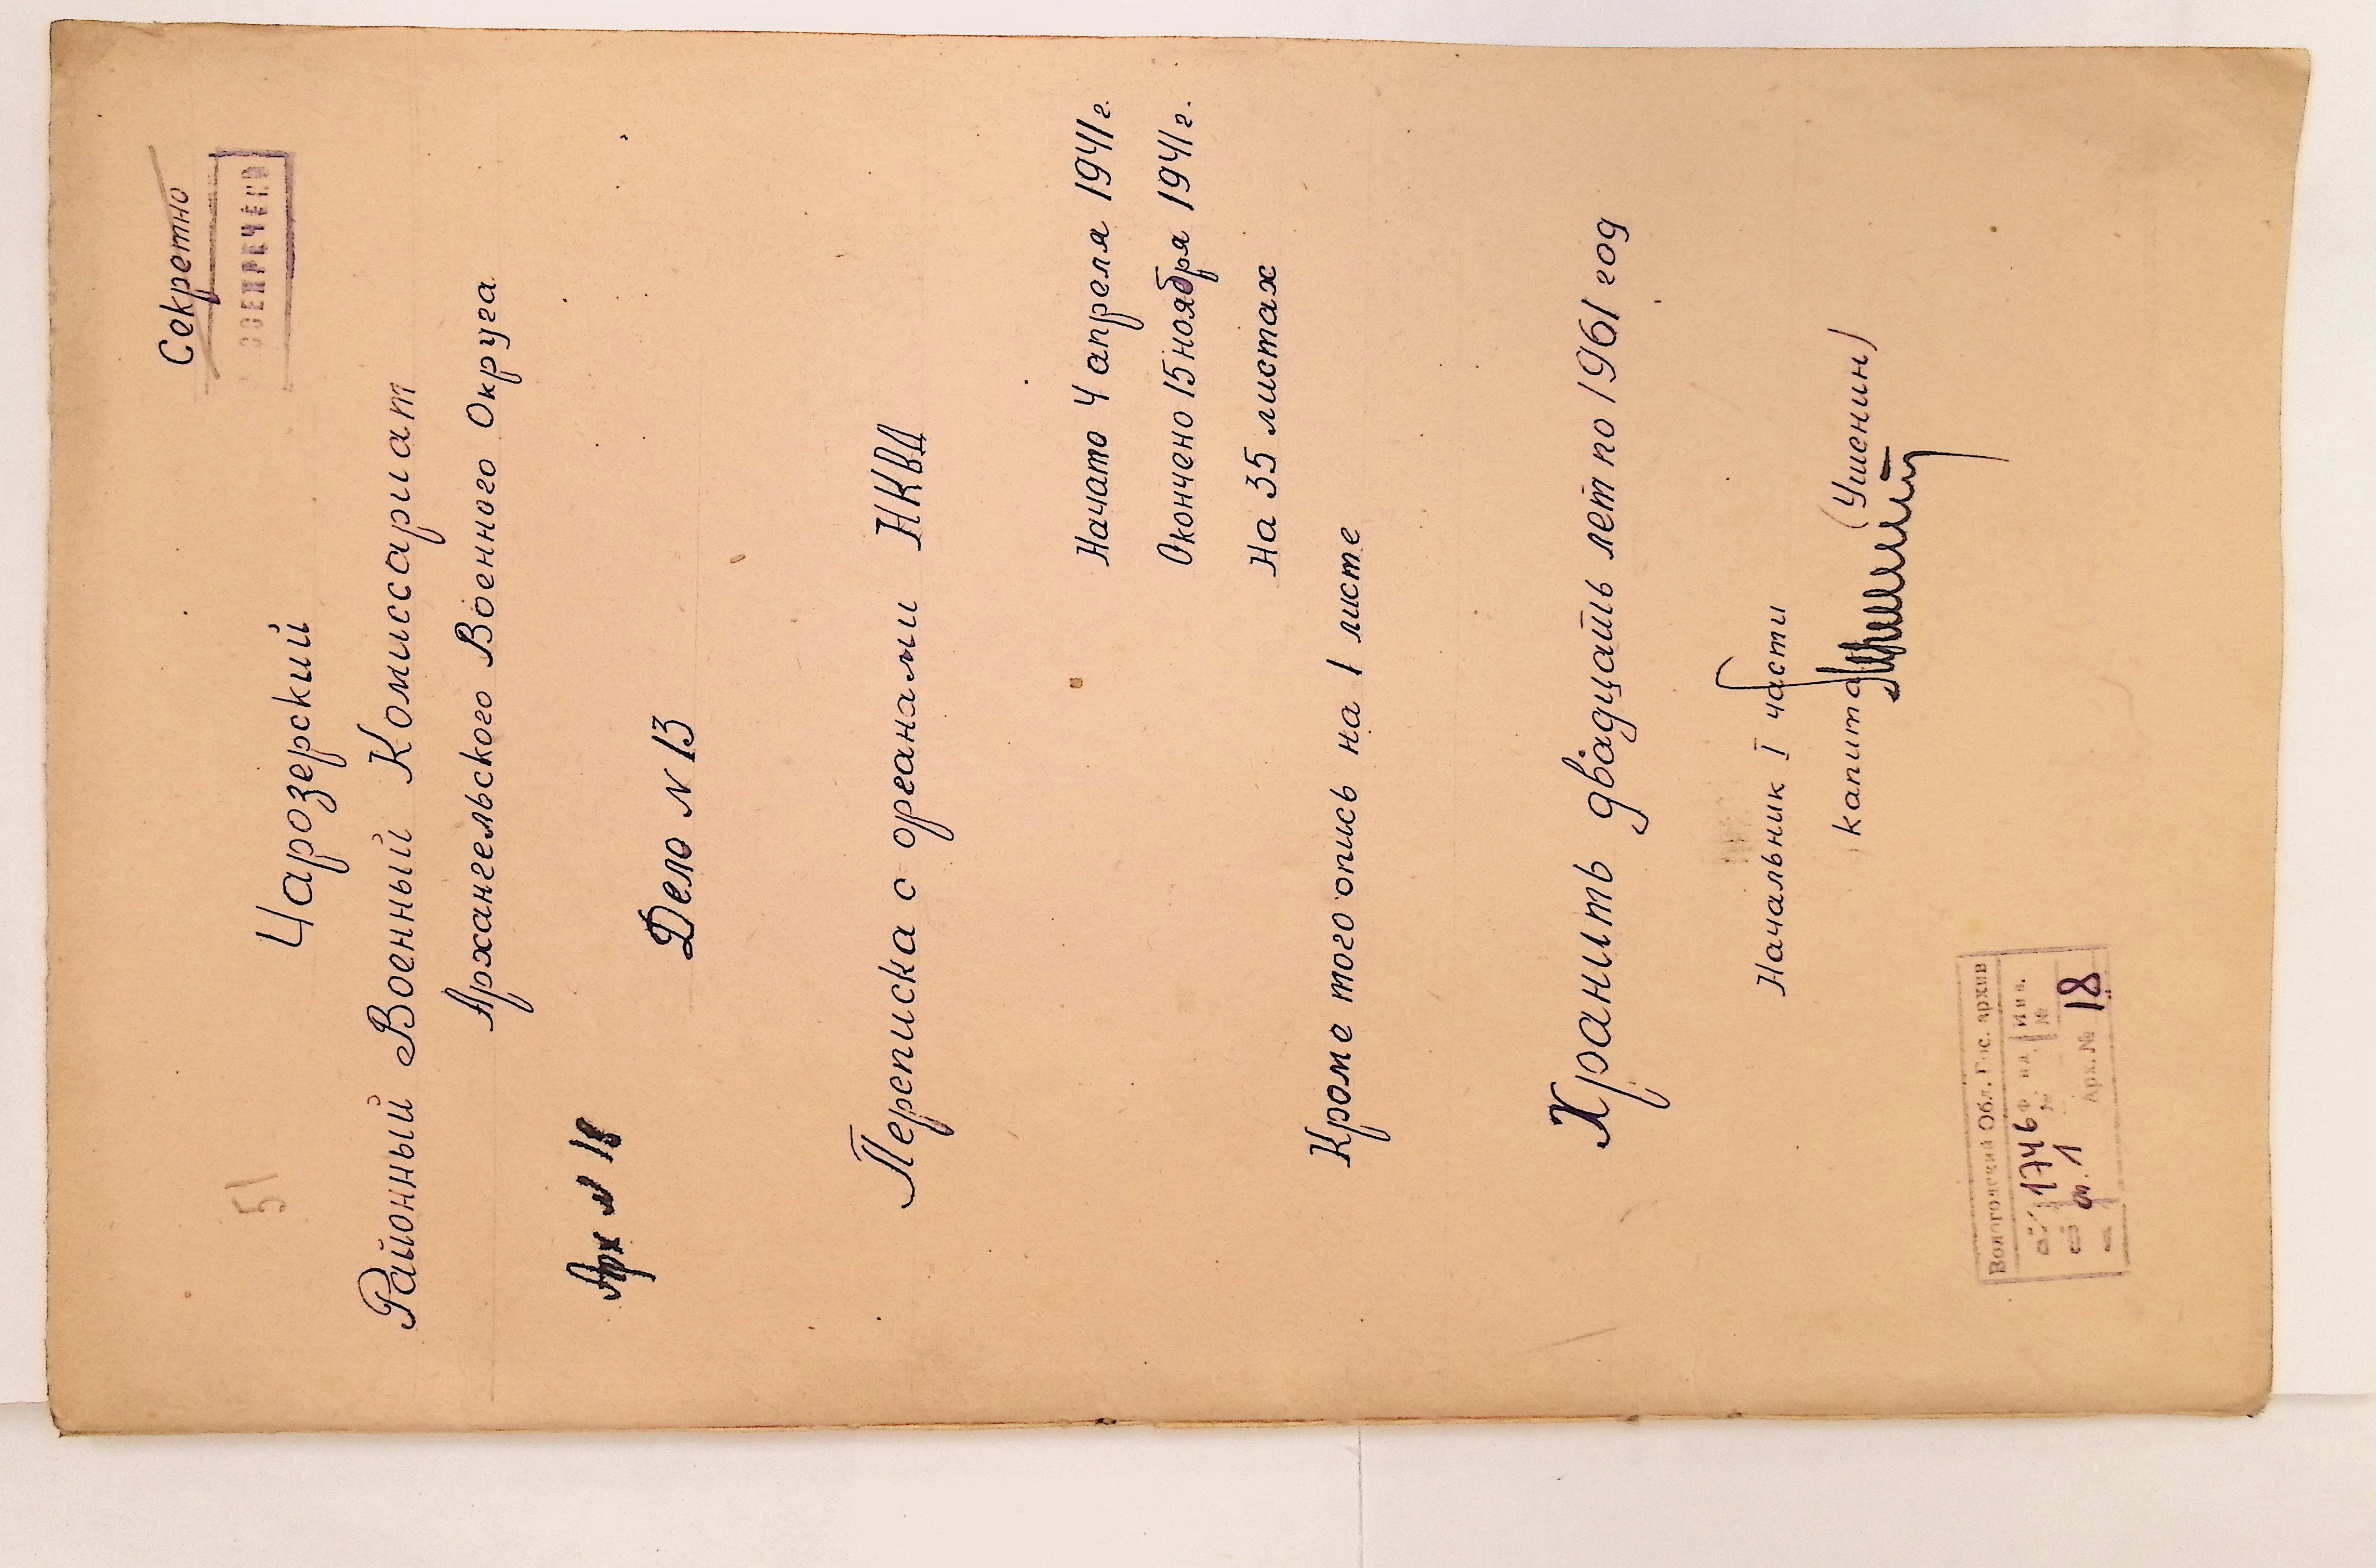 Секретно
РАССЕКРЕЧЕНО
51
Чарозерский
Районный Военный Комиссариат
Архангельского Военного Округа
Арх № 18
Дело № 13
Переписка с органами НКВД
Начато 4 апреля 1941 г.
Окончено 15 ноября 1941 г.
На 35 листах
Кроме того опись на 1 листе
Хранить двадцать лет по 1961 год
Начальник I части
капитан (Ушенин)
Вологодский Обл. Гос. архив
1746
оп. 1
Инв. №
Арх. № 18